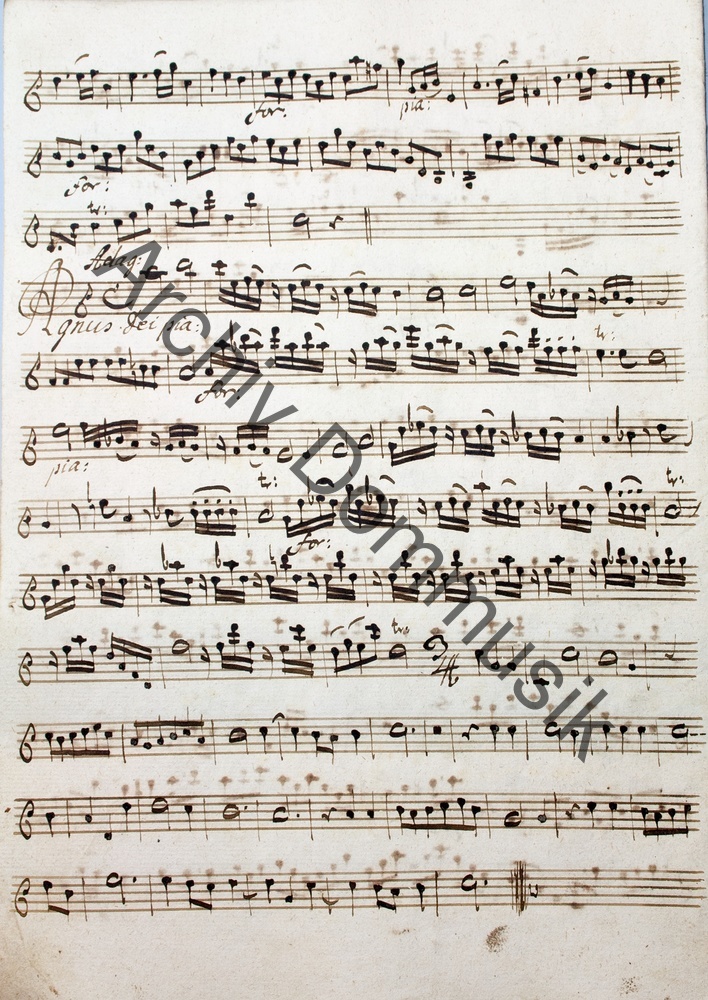 for: pia:
for:
tr:
Adag:
Agnus Dei pia:
tr:
for:
pia:
tr: tr:
for:
tr:
3/4
Archiv Dommusik